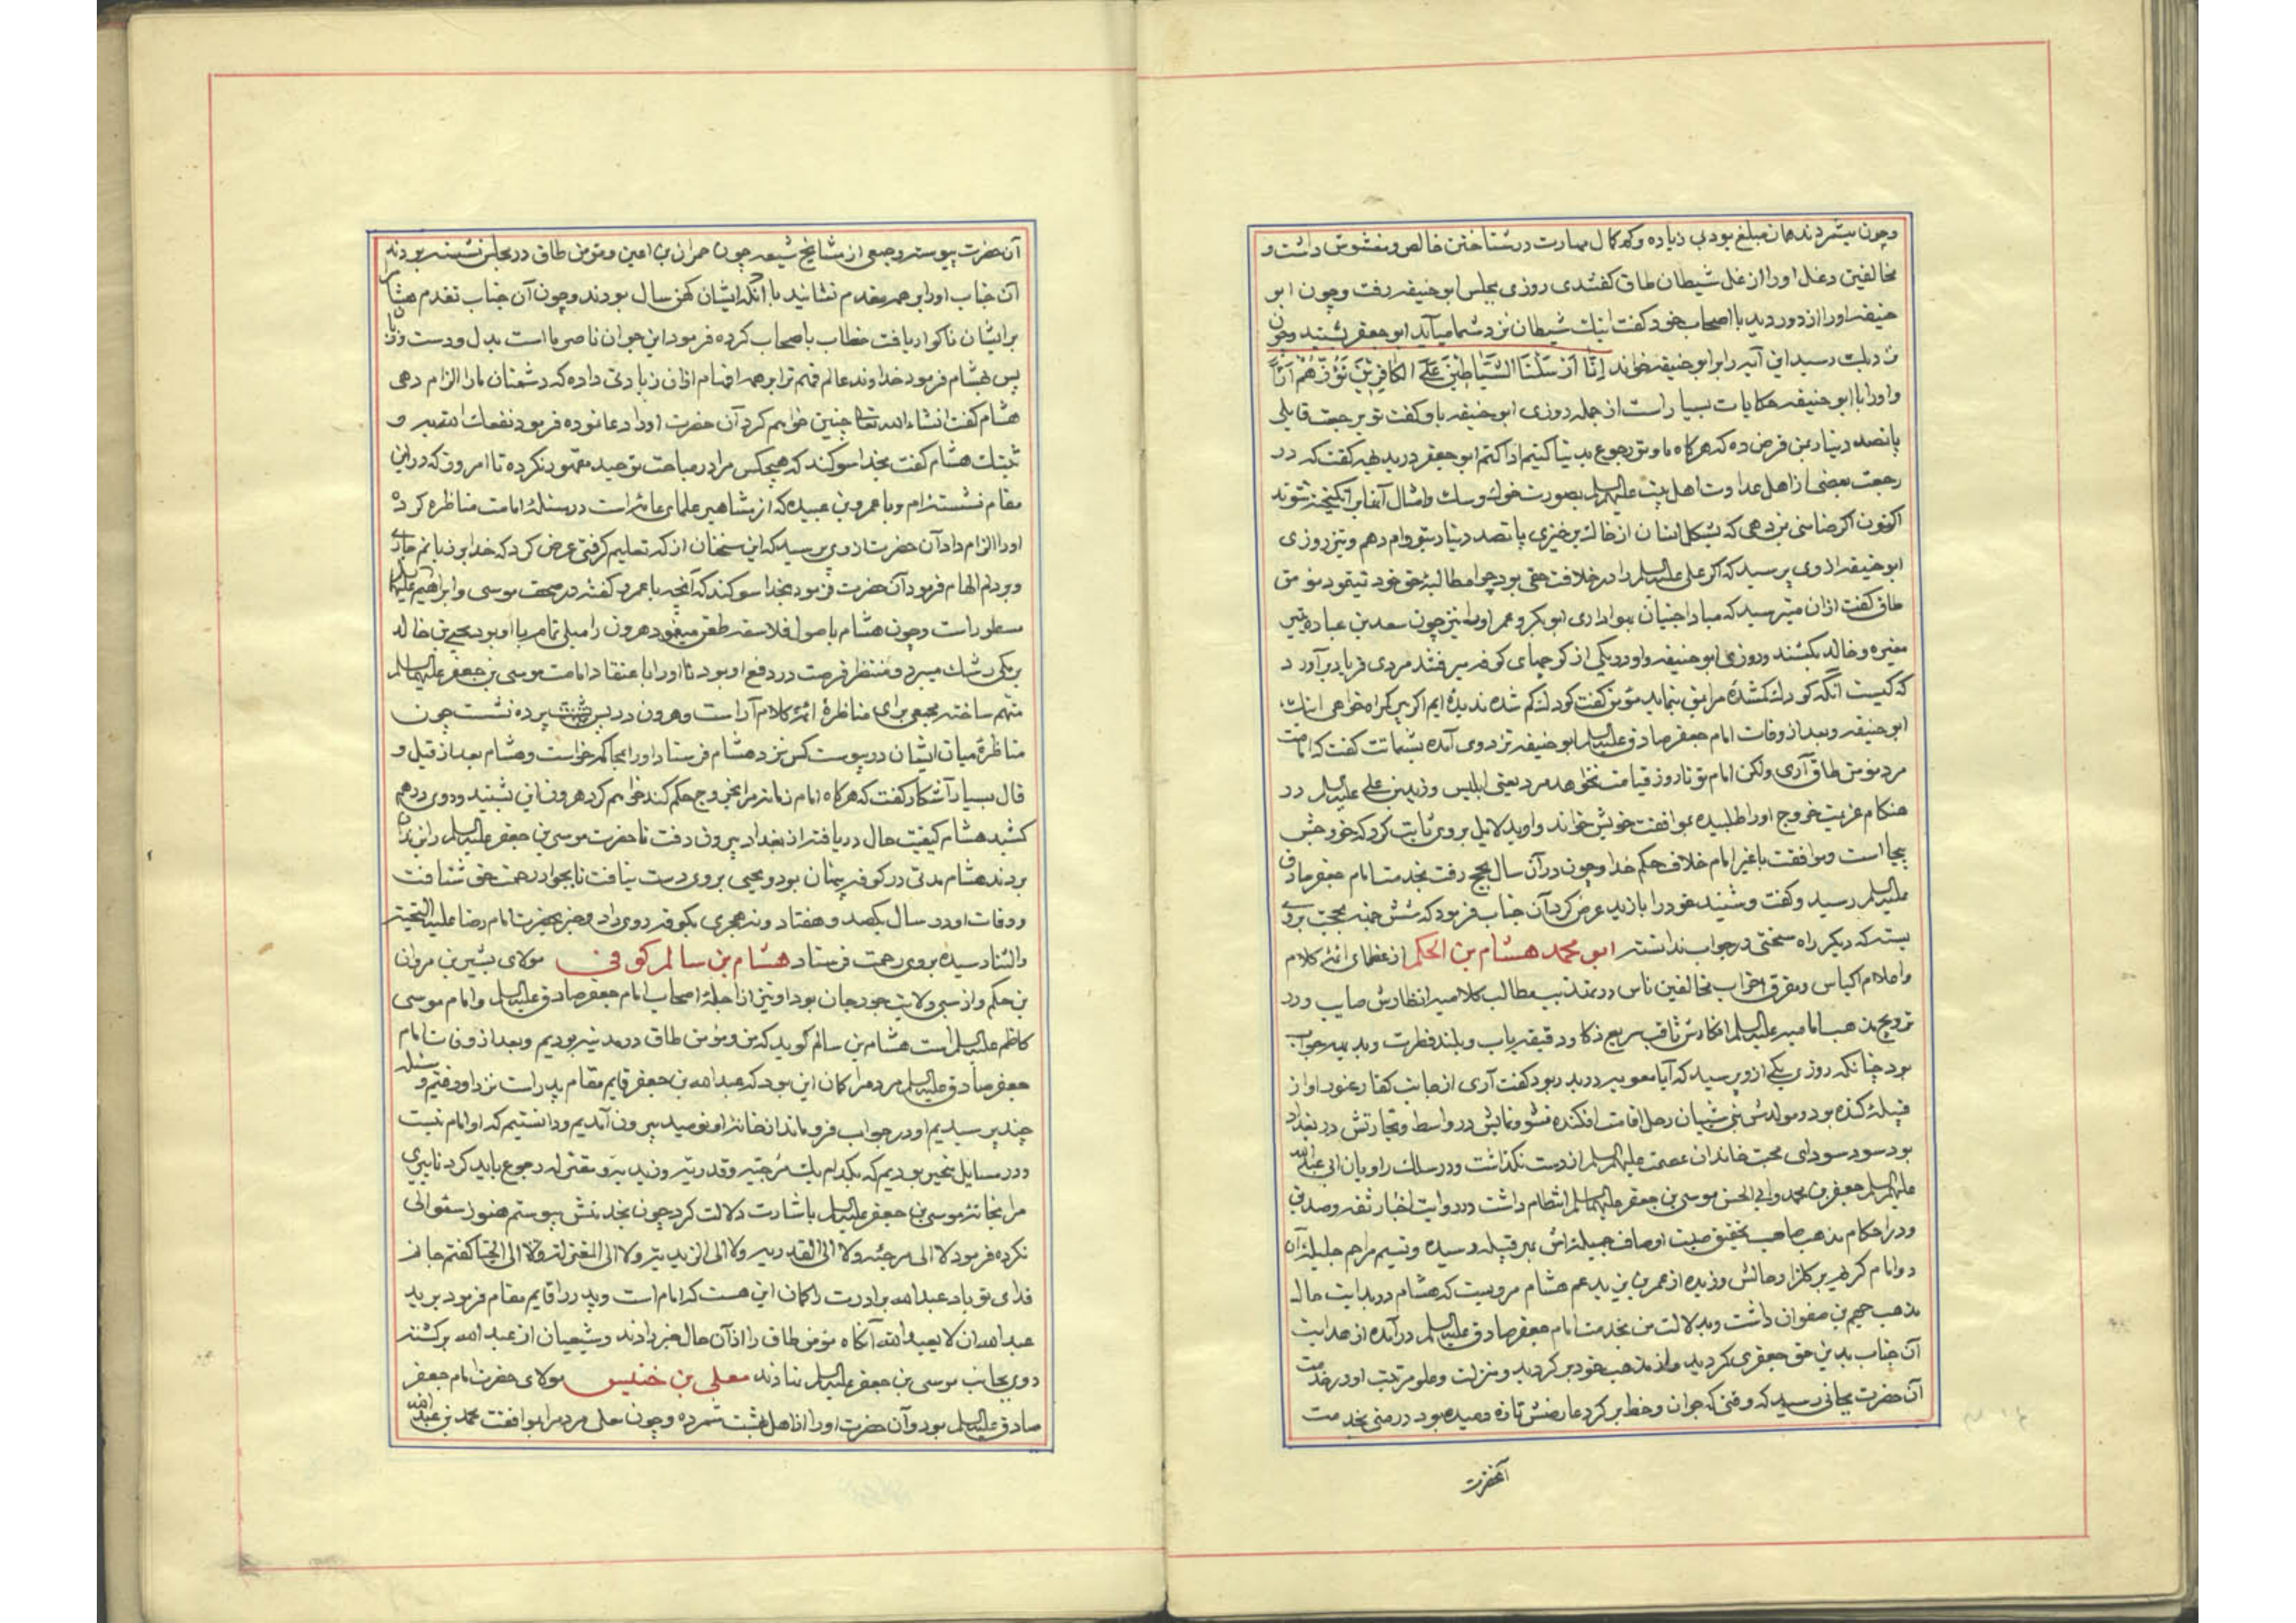 وچون میشمردند همان مبلغ بود بی زیاده و کم کمال مهارت در شناختن خالص و مغشوش داشت و
مخالفین دغل او را از غل شیطان طاق گفتندی روزی بمجلس ابو حنیفه رفت وچون ابو
حنیفه او را از دور دید با اصحاب خود گفت اینک شیطان نزد شما میآید ابو جعفر بشنید وچون
نزدیک رسید این آیه را بر ابو حنیفه خواند اِنّا اَرْسَلْنَا الشَّیاطینَ عَلَی الکافِرینَ تَؤُزُّهُمْ اَزّاً
و او را با ابو حنیفه حکایات بسیار است از جمله روزی ابو حنیفه باو گفت تو برجعت قایلی
پانصد دینار بمن قرض ده که هرکاه ما وتو رجوع بدنیا کنیم ادا کنم ابو جعفر در بدیهه گفت که در
رجعت بعضی از اهل عداوت اهل بیت علیهم السلام بصورت خوک وسک وامثال آنها برانگیخته شوند
اکنون اکر ضامنی بمن دهی که بشکل انسان از خاک بر خیزی پانصد دینار بتو وام دهم ونیز روزی
ابو حنیفه از وی پرسید که اکر علی علیه السلام را در خلافت حقی بود چرا مطالبهٔ حق خود ننمود مؤمن
طاق گفت ازان میترسید که مبادا جنیان بهواداری ابو بکر وعمر او را نیز چون سعد بن عباده بتیر
مغیره وخالد بکشند وروزی ابو حنیفه واو در یکی از کوچهای کوفه میرفتند مردی فریاد برآورد
که کیست آنکه کودک کمشدهٔ مرا بمن بنماید مؤمن گفت کودک کم شده ندیده ایم اکر پیر کمراه خواهی اینک
ابو حنیفه وبعد از وفات امام جعفر صادق علیه السلام ابو حنیفه نزد وی آمده بشماتت گفت که امامت
مرد مؤمن طاق آری ولکن امام تو تا روز قیامت نخواهد مرد یعنی ابلیس وزید بن علی علیه السلام در
هنکام عزیمت خروج او را طلبیده بموافقت خویش خواند واو بدلایل بروی ثابت کرد که خروجش
بیجا است وموافقت با غیر امام خلاف حکم خدا وچون در آن سال بحج رفت بخدمت امام جعفر صادق
علیه السلام رسید وگفت وشنید خود را با زید عرض کرد آن جناب فرمود که شش جهت بحجت بروی
بستی که دیکر راه سخنی در جواب نداشت ابو محمد هشام بن الحکم از عظمای ائمهٔ کلام
واعلام اکیاس ومفرق احزاب مخالفین ناس در تهذیب مطالب کلامیه انظارش صایب ودر
ترویج مذهب امامیه علیهم السلام افکارش ثاقب سریع ذکا ودقیقه یاب وبلند فطرت وبدیهه جواب
بود چنانکه روزی یکی ازو پرسید که آیا معویه در بدر بود گفت آری از جانب کفار غنود او از
قبیلهٔ کنده بود ومولدش بنی شیبان رحل اقامت افکنده نشو ونمایش در واسط وتجارتش در بغداد
بود سود سودای محبت خاندان عصمت علیهم السلام از دست نکذاشت ودر سلک راویان ابی عبدالله
علیه السلام جعفر بن محمد وابی الحسن موسی بن جعفر علیهما السلام انتظام داشت ودر روایت اخبار ثقه وصدوق
ودر احکام مذهب صاحب تحقیق صیت اوصاف جمیله اش بهر قبیله رسیده ونسیم مراحم جلیله آن
دو امام کریم بر کلزار حالش وزیده از عمر بن یزید عم هشام مرویست که هشام در بدایت حال
مذهب جهم بن صفوان داشت وبدلالت من بخدمت امام جعفر صادق علیه السلام درآمده از هدایت
آن جناب بدین حق جعفری کردید واز مذهب خود برکردید ومنزلت وعلو مرتبت او در خدمت
آن حضرت بجائی رسید که وقتی که جوان وخط بر کرد عارضش تازه دمیده بود در منی بخدمت
آنحضرت
آن حضرت پیوست وجمعی از مشایخ شیعه چون حمران بن اعین ومؤمن طاق در مجلس نشسته بودند
آن جناب او را بر همه مقدم نشانید با آنکه ایشان کهن سال بودند وچون آن جناب تقدم هشام را
بر ایشان ناکوار یافت خطاب باصحاب کرده فرمود این جوان ناصر ما است بدل ودست وزبان
پس هشام فرمود خداوند عالم فهم ترا بر همه افهام ازان زیادتی داده که دشمنان ما را الزام دهی
هشام گفت انشاء الله تعالی چنین خواهم کرد آن حضرت او را دعا نموده فرمود نفعک الله به و
ثبتک هشام گفت بخدا سوکند که هیچکس مرا در مباحث توحید مقهور نکرده تا امروز که در این
مقام نشسته ام وبا عمرو بن عبیده که از مشاهیر علمای عامه است در مسئلهٔ امامت مناظره کرده
او را الزام داد آن حضرت از وی پرسید که این سخنان از که تعلیم کرفتی عرض کرد که خدا بر زبانم جاری
وبر دلم الهام فرمود آن حضرت فرمود بخدا سوکند که آنچه با عمرو گفته در صحف موسی وابراهیم علیهما السلام
مسطور است وچون هشام باصول فلاسفه طعن مینمود هرون را میلی تمام با او بود یحیی بن خالد
برمکی رشک میبرد ومنتظر فرصت در دفع او بود تا او را باعتقاد امامت موسی بن جعفر علیهما السلام
متهم ساخته مجمعی برای مناظرهٔ ائمهٔ کلام آراست وهرون در پس پرده نشست چون
مناظرهٔ میان ایشان در پیوست کس نزد هشام فرستاد او را بمحاکمه خواست وهشام بعد از قیل و
قال بسیار آشکار گفت که هرکاه امام زمانه مرا بخروج حکم کند خواهم کرد هرون این بشنید وروی درهم
کشید هشام کیفیت حال دریافته از بغداد بیرون رفت تا حضرت موسی بن جعفر علیه السلام را بزندان
بردند هشام مدتی در کوفه پنهان بود ویحیی بروی دست نیافت تا بجوار رحمت حق شتافت
ووفات او در سال یکصد وهفتاد ونه هجری بکوفه روی داد وخبر بحضرت امام رضا علیه التحیة
والثناء رسیده بروی رحمت فرستاد هشام بن سالم کوفی مولای بشیر بن مروان
بن حکم واز سبی ولایت جوزجان بود او نیز از اجلهٔ اصحاب امام جعفر صادق علیه السلام وامام موسی
کاظم علیه السلام است هشام بن سالم کوید که من ومؤمن طاق در مدینه بودیم وبعد از وفات امام
جعفر صادق علیه السلام مردم را کمان این بود که عبدالله بن جعفر قایم مقام پدر است نزد او رفتیم ومسئله
چند پرسیدیم او در جواب فرو ماند از خانهٔ او نومید بیرون آمدیم ودانستیم که او امام نیست
ودر مسایل متحیر بودیم که بکدام یک مرجئه وقدریه وزیدیه ومعتزله رجوع باید کرد تا پیری
مرا بخانهٔ موسی بن جعفر علیه السلام باشارت دلالت کرد چون بخدمتش پیوستم هنوز سئوالی
نکرده فرمود لا الی مرجئه ولا الی القدریه ولا الی الزیدیه ولا الی المعتزله ولا الی گفتم جانم
فدای تو باد عبدالله برادرت را کمان این هست که امام است وپدر را قایم مقام فرمود یرید
عبدالله ان لا یعبد الله آنکاه مؤمن طاق را از آن حال خبر دادند وشیعیان از عبدالله برکشته
روی بجانب موسی بن جعفر علیه السلام نهادند معلی بن خنیس مولای حضرت امام جعفر
صادق علیه السلام بود وآن حضرت او را از اهل بهشت شمرده وچون معلی مردم را بموافقت محمد بن عبدالله